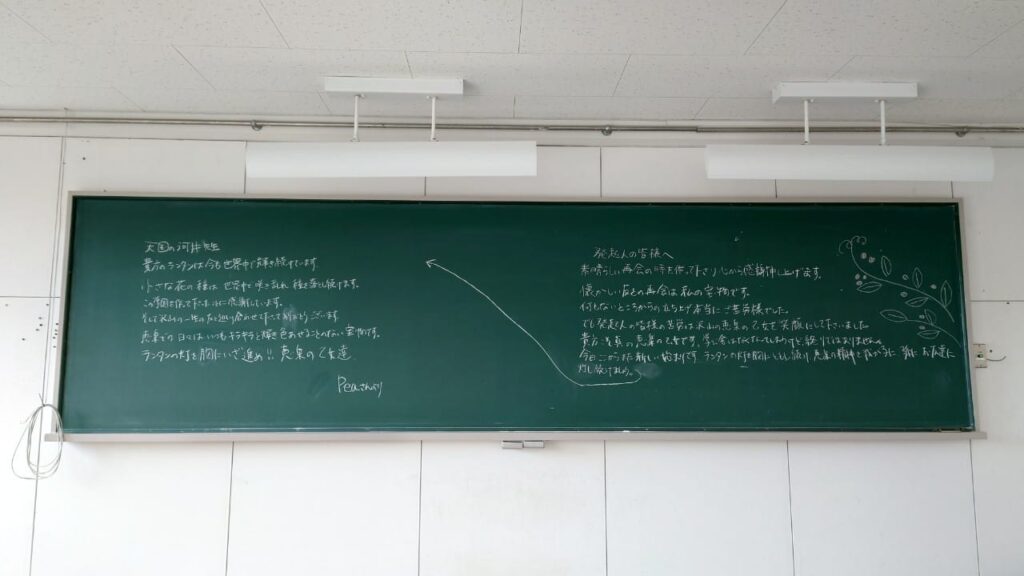 天国の河井先生
貴方のランタンは今も世界中で輝き続けています。
小さな花の種は世界中に咲き乱れ種を落とし続けます。
この学園を作って下さった事に感謝しています。
そして沢山の一生の友と巡り合わせて下さって有りがとうございます
恵泉での日々はいつもキラキラと輝き色あせることのない宝物です。
ランタンの灯を胸にいざ進め!! 恵泉の乙女達
Peaさんより
発起人の皆様へ
素晴らしい再会の時を作って下さり心から感謝申し上げます。
懐かしい友との再会は私の宝物です。
何もないところからの立ち上げ本当にご苦労様でした。
でも発起人の皆様の苦労は沢山の恵泉の乙女を笑顔にして下さいました
貴方達は真の恵泉の乙女です。学び舎は
終りではありません。
今日ここからまた新しい始まりです ランタンの灯を胸にともし
恵泉の
お友達に
灯し続けましょう。